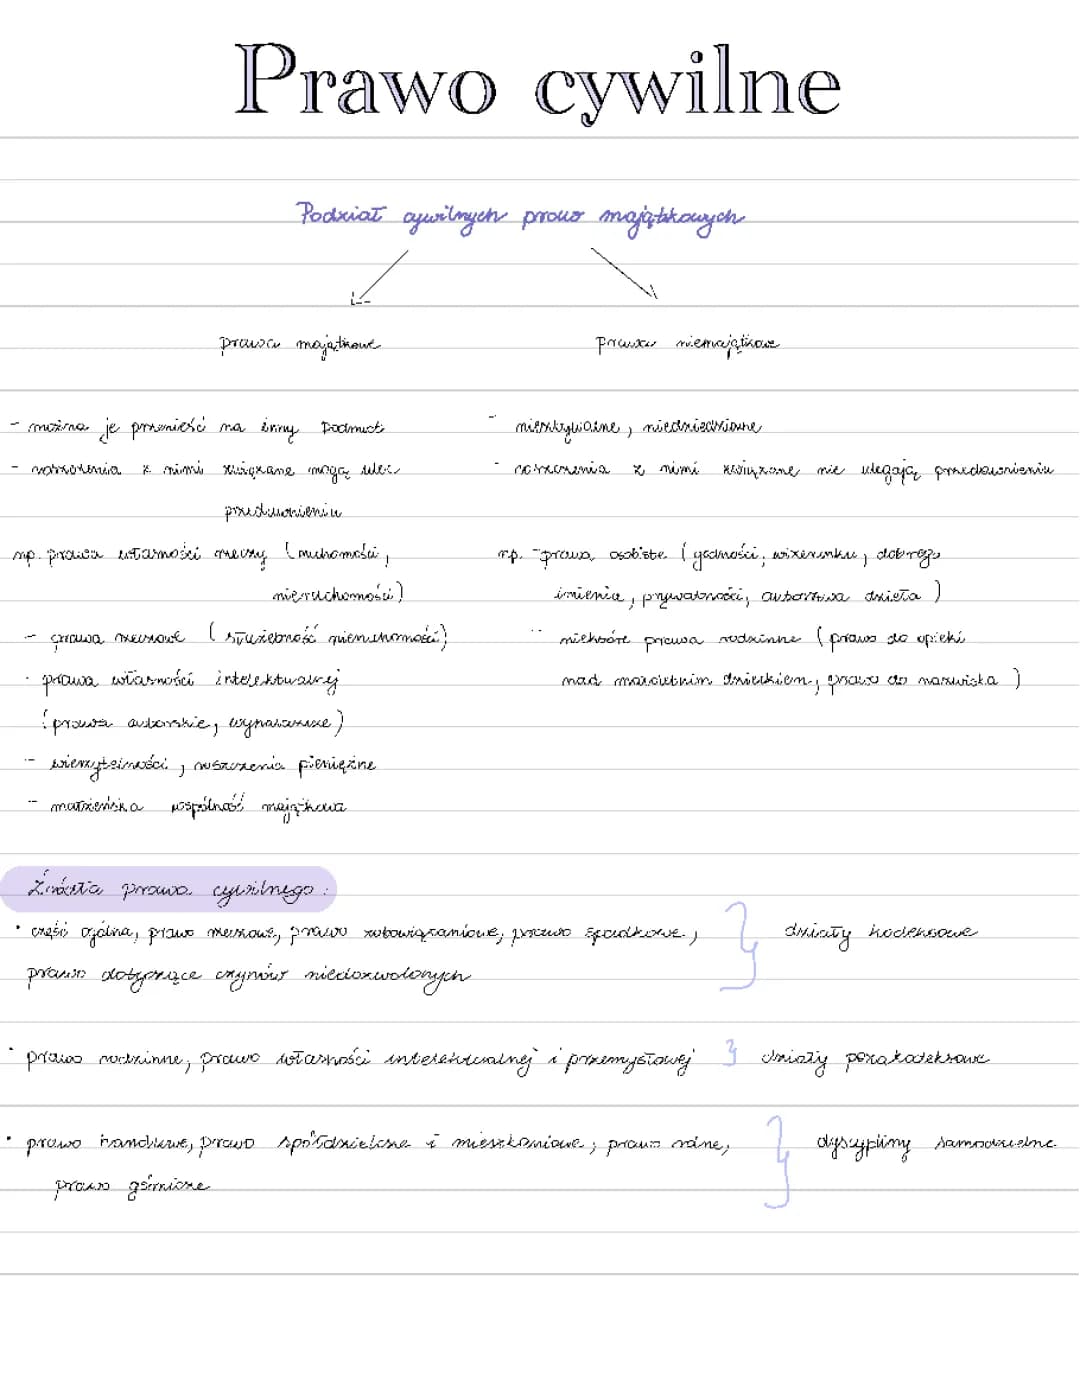 Prawo cywilne
Podział cywilnych praw majątkowych
prawa majątkowe
prawa niemajątkowe
- można je przenieść na inny podmiot
- roszczenia z nimi związane mogą ulec
przedawnieniu
np. prawa własności rzeczy (ruchomości,
nieruchomości)
- prawa rzeczowe (służebność nieruchomości)
- prawa własności intelektualnej
(prawa autorskie, wynalazcze)
- wierzytelności, roszczenia pieniężne
- małżeńska wspólność majątkowa
- niezbywalne, niedziedziczne
- roszczenia z nimi związane nie ulegają przedawnieniu
np. - prawa osobiste (godności, wizerunku, dobrego
imienia, prywatności, autorstwa dzieła)
- niektóre prawa rodzinne (prawo do opieki
nad małoletnim dzieckiem, prawo do nazwiska)
Źródła prawa cywilnego:
• część ogólna, prawo rzeczowe, prawo zobowiązaniowe, prawo spadkowe,
prawo dotyczące czynów niedozwolonych
} działy kodeksowe
• prawo rodzinne, prawo własności intelektualnej i przemysłowej } działy pozakodeksowe
• prawo handlowe, prawo spółdzielcze i mieszkaniowe, prawo rolne,
prawo górnicze
} dyscypliny samodzielne